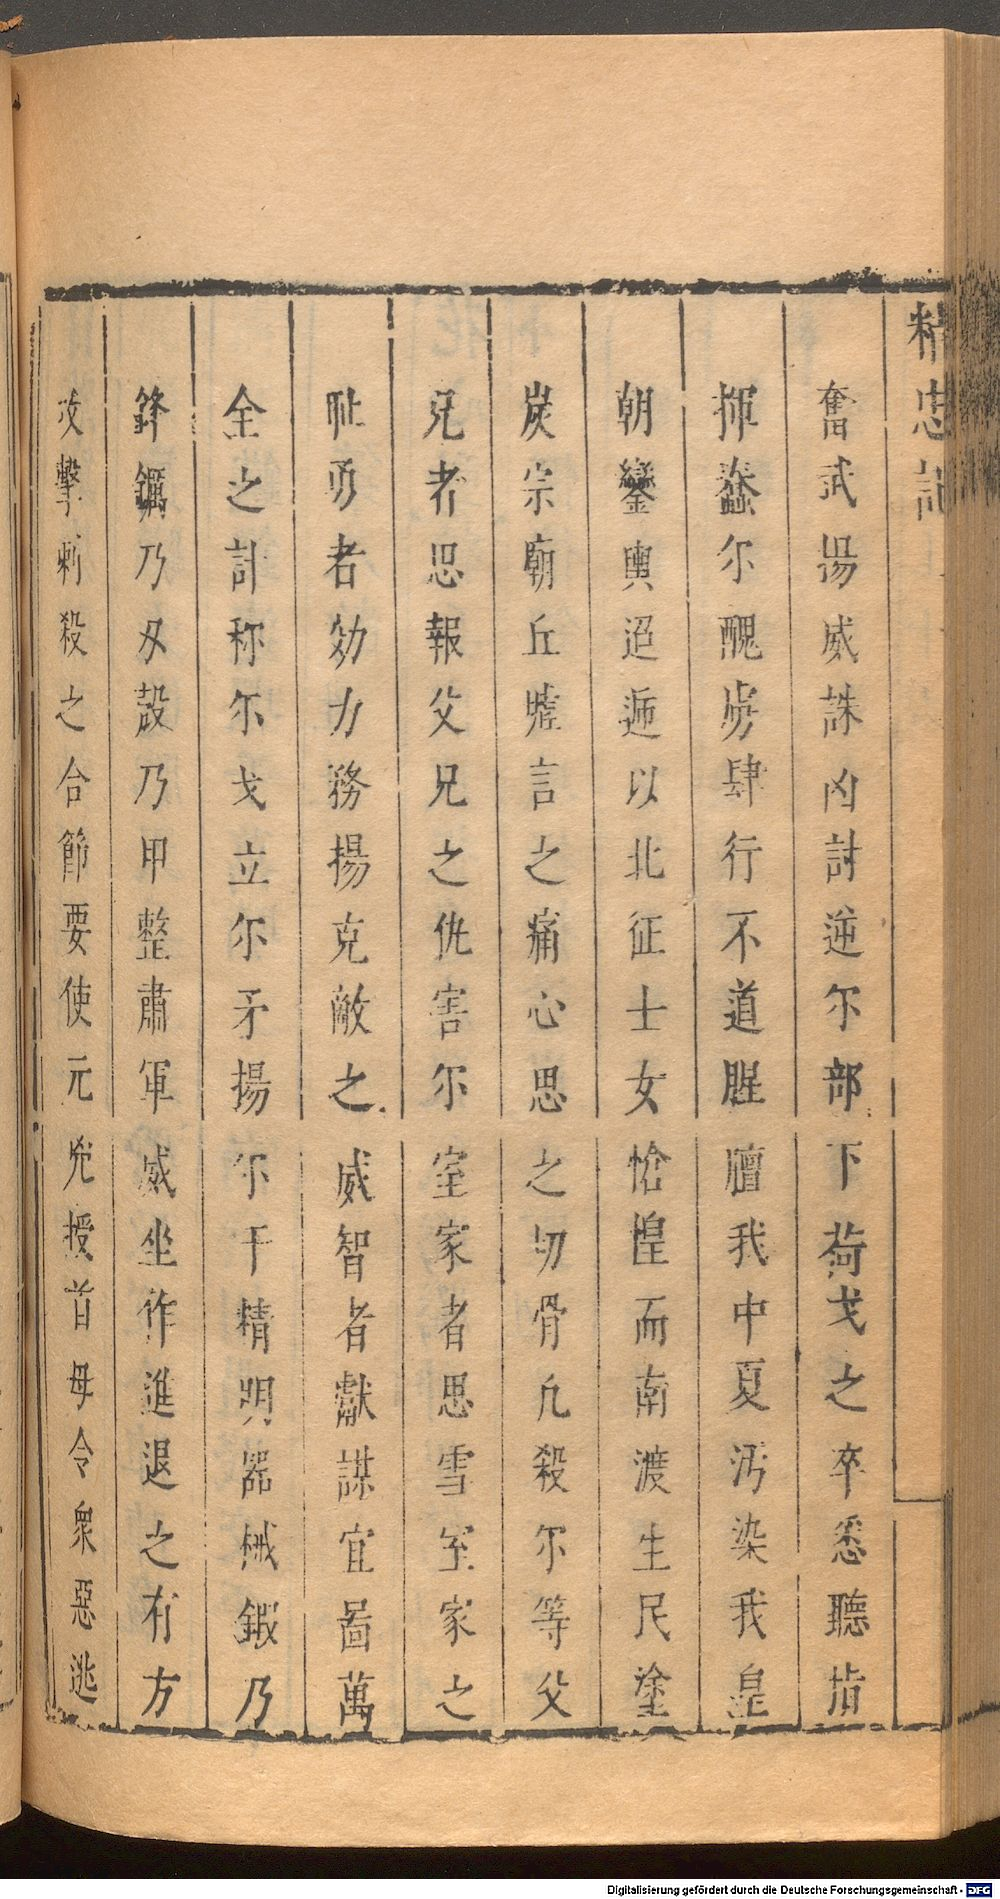 精忠記
奮武揚威誅凶討逆尔部下荷戈之卒悉聽指
揮蠢尔醜虜肆行不道腥膻我中夏汚染我皇
朝鑾輿迢遞以北征士女愴惶而南渡生民塗
炭宗廟丘墟言之痛心思之切骨凢殺尔等父
兄者思報父兄之仇害尔室家者思雪室家之
耻勇者効力務揚克敵之威智者獻謀宜啚萬
全之計称尔戈立尔矛揚尔干精明器械鍜乃
鋒鐦乃殳設乃甲整肅軍威坐作進退之有方
攻擊刺殺之合節要使元兇授首毋令衆惡逃
Digitalisierung gefördert durch die Deutsche Forschungsgemeinschaft - DFG